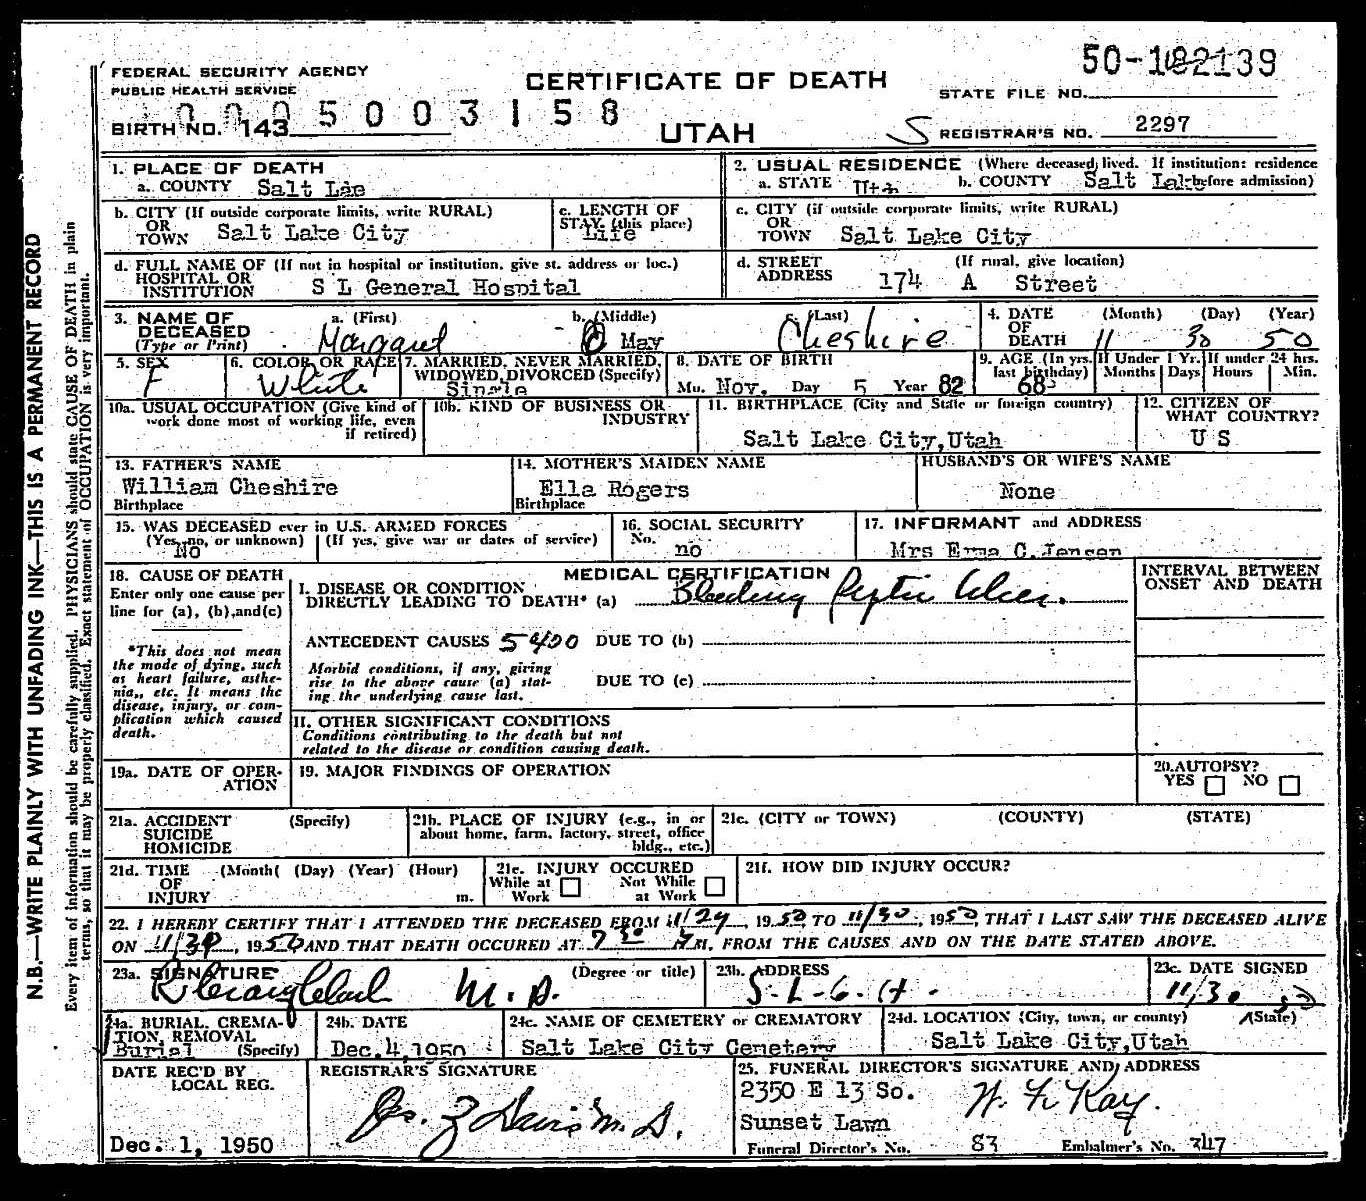 50-182139
FEDERAL SECURITY AGENCY
PUBLIC HEALTH SERVICE
CERTIFICATE OF DEATH
STATE FILE NO.
0005003158
BIRTH NO. 143
UTAH
S REGISTRAR'S NO. 2297
1. PLACE OF DEATH
a. COUNTY Salt Lae
2. USUAL RESIDENCE (Where deceased lived. If institution: residence before admission)
a. STATE Utah b. COUNTY Salt Lake
b. CITY (If outside corporate limits, write RURAL)
OR
TOWN Salt Lake City
c. LENGTH OF
STAY (this place)
Life
c. CITY (if outside corporate limits, write RURAL)
OR
TOWN Salt Lake City
d. FULL NAME OF (If not in hospital or institution, give st. address or loc.)
HOSPITAL OR
INSTITUTION S L General Hospital
d. STREET (If rural, give location)
ADDRESS 174 A Street
3. NAME OF
DECEASED
(Type or Print)
a. (First) Margaret
b. (Middle) May
c. (Last) Cheshire
4. DATE
OF
DEATH
(Month) (Day) (Year)
11 30 50
5. SEX
F
6. COLOR OR RACE
White
7. MARRIED, NEVER MARRIED,
WIDOWED, DIVORCED (Specify)
Single
8. DATE OF BIRTH
Mo. Nov. Day 5 Year 82
9. AGE (In yrs.
last birthday)
68
If Under 1 Yr.
Months Days
If under 24 hrs.
Hours Min.
10a. USUAL OCCUPATION (Give kind of
work done most of working life, even
if retired)
10b. KIND OF BUSINESS OR
INDUSTRY
11. BIRTHPLACE (City and State or foreign country)
Salt Lake City,Utah
12. CITIZEN OF
WHAT COUNTRY?
U S
13. FATHER'S NAME
William Cheshire
Birthplace
14. MOTHER'S MAIDEN NAME
Ella Rogers
Birthplace
HUSBAND'S OR WIFE'S NAME
None
15. WAS DECEASED ever in U.S. ARMED FORCES
(Yes, no, or unknown) (If yes, give war or dates of service)
No
16. SOCIAL SECURITY
No.
no
17. INFORMANT and ADDRESS
Mrs Erma C.Jensen
18. CAUSE OF DEATH
Enter only one cause per
line for (a), (b), and (c)
*This does not mean
the mode of dying, such
as heart failure, asthe-
nia,, etc. It means the
disease, injury, or com-
plication which caused
death.
MEDICAL CERTIFICATION
I. DISEASE OR CONDITION
DIRECTLY LEADING TO DEATH* (a) Bleeding Peptic Ulcer.
ANTECEDENT CAUSES 5400 DUE TO (b)
Morbid conditions, if any, giving
rise to the above cause (a) stat-
ing the underlying cause last.
DUE TO (c)
II. OTHER SIGNIFICANT CONDITIONS
Conditions contributing to the death but not
related to the disease or condition causing death.
INTERVAL BETWEEN
ONSET AND DEATH
19a. DATE OF OPER-
ATION
19. MAJOR FINDINGS OF OPERATION
20. AUTOPSY?
YES NO
21a. ACCIDENT (Specify)
SUICIDE
HOMICIDE
21b. PLACE OF INJURY (e.g., in or
about home, farm, factory, street, office
bldg., etc.)
21c. (CITY or TOWN) (COUNTY) (STATE)
21d. TIME (Month( (Day) (Year) (Hour)
OF
INJURY m.
21e. INJURY OCCURED
While at Work Not While at Work
21f. HOW DID INJURY OCCUR?
22. I HEREBY CERTIFY THAT I ATTENDED THE DECEASED FROM 11/29, 1950 TO 11/30, 1950, THAT I LAST SAW THE DECEASED ALIVE
ON 11/30, 1950 AND THAT DEATH OCCURED AT 7 30 M, FROM THE CAUSES AND ON THE DATE STATED ABOVE.
23a. SIGNATURE (Degree or title)
R Craig Clark M.D.
23b. ADDRESS
S-L-G.H.
23c. DATE SIGNED
11/30 50
24a. BURIAL, CREMA-
TION, REMOVAL
Burial (Specify)
24b. DATE
Dec.4,1950
24c. NAME OF CEMETERY or CREMATORY
Salt Lake City Cemetery
24d. LOCATION (City, town, or county) (State)
Salt Lake City,Utah
DATE REC'D BY
LOCAL REG.
Dec. 1, 1950
REGISTRAR'S SIGNATURE
Jas. Z Davis M.D.
25. FUNERAL DIRECTOR'S SIGNATURE AND ADDRESS
2350 E 13 So. W. F. Kay.
Sunset Lawn
Funeral Director's No. 83 Embalmer's No. 347
N.B.—WRITE PLAINLY WITH UNFADING INK—THIS IS A PERMANENT RECORD
Every item of information should be carefully supplied. PHYSICIANS should state CAUSE OF DEATH in plain
terms, so that it may be properly classified. Exact statement of OCCUPATION is very important.